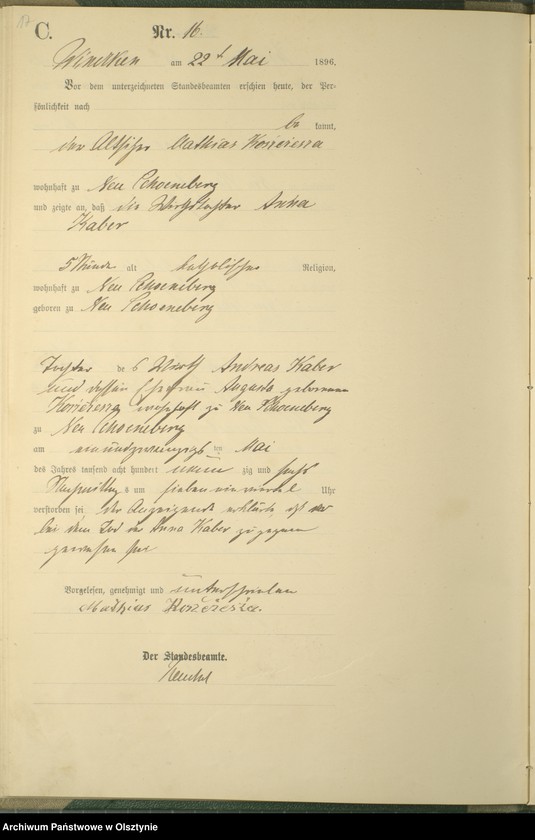 17
C.
Nr. 16.
Wineken am 22ᵗ Mai 1896.
Vor dem unterzeichneten Standesbeamten erschien heute, der Per-
sönlichkeit nach
be kannt,
der Altsitzer Mathias
wohnhaft zu Neu Schoeneberg
und zeigte an, daß die Wirthstochter Anna
Kaber
5 Stunden alt katholischer Religion,
wohnhaft zu Neu Schoeneberg
geboren zu Neu Schoeneberg
Tochter des Wirth Andreas Kaber
und dessen Ehefrau Augusta geborenen
wohnhaft zu Neu Schoeneberg
zu Neu Schoeneberg
am einundzwanzigsten Mai
des Jahres tausend acht hundert neun zig und sechs
Nachmittags um sieben ein viertel Uhr
verstorben sei. Der Anzeigende erklärte, daß er
bei dem Tod der Anna Kaber zugegen
gewesen sei
Vorgelesen, genehmigt und unterschrieben
Mathias
Der Standesbeamte.
Archiwum Państwowe w Olsztynie